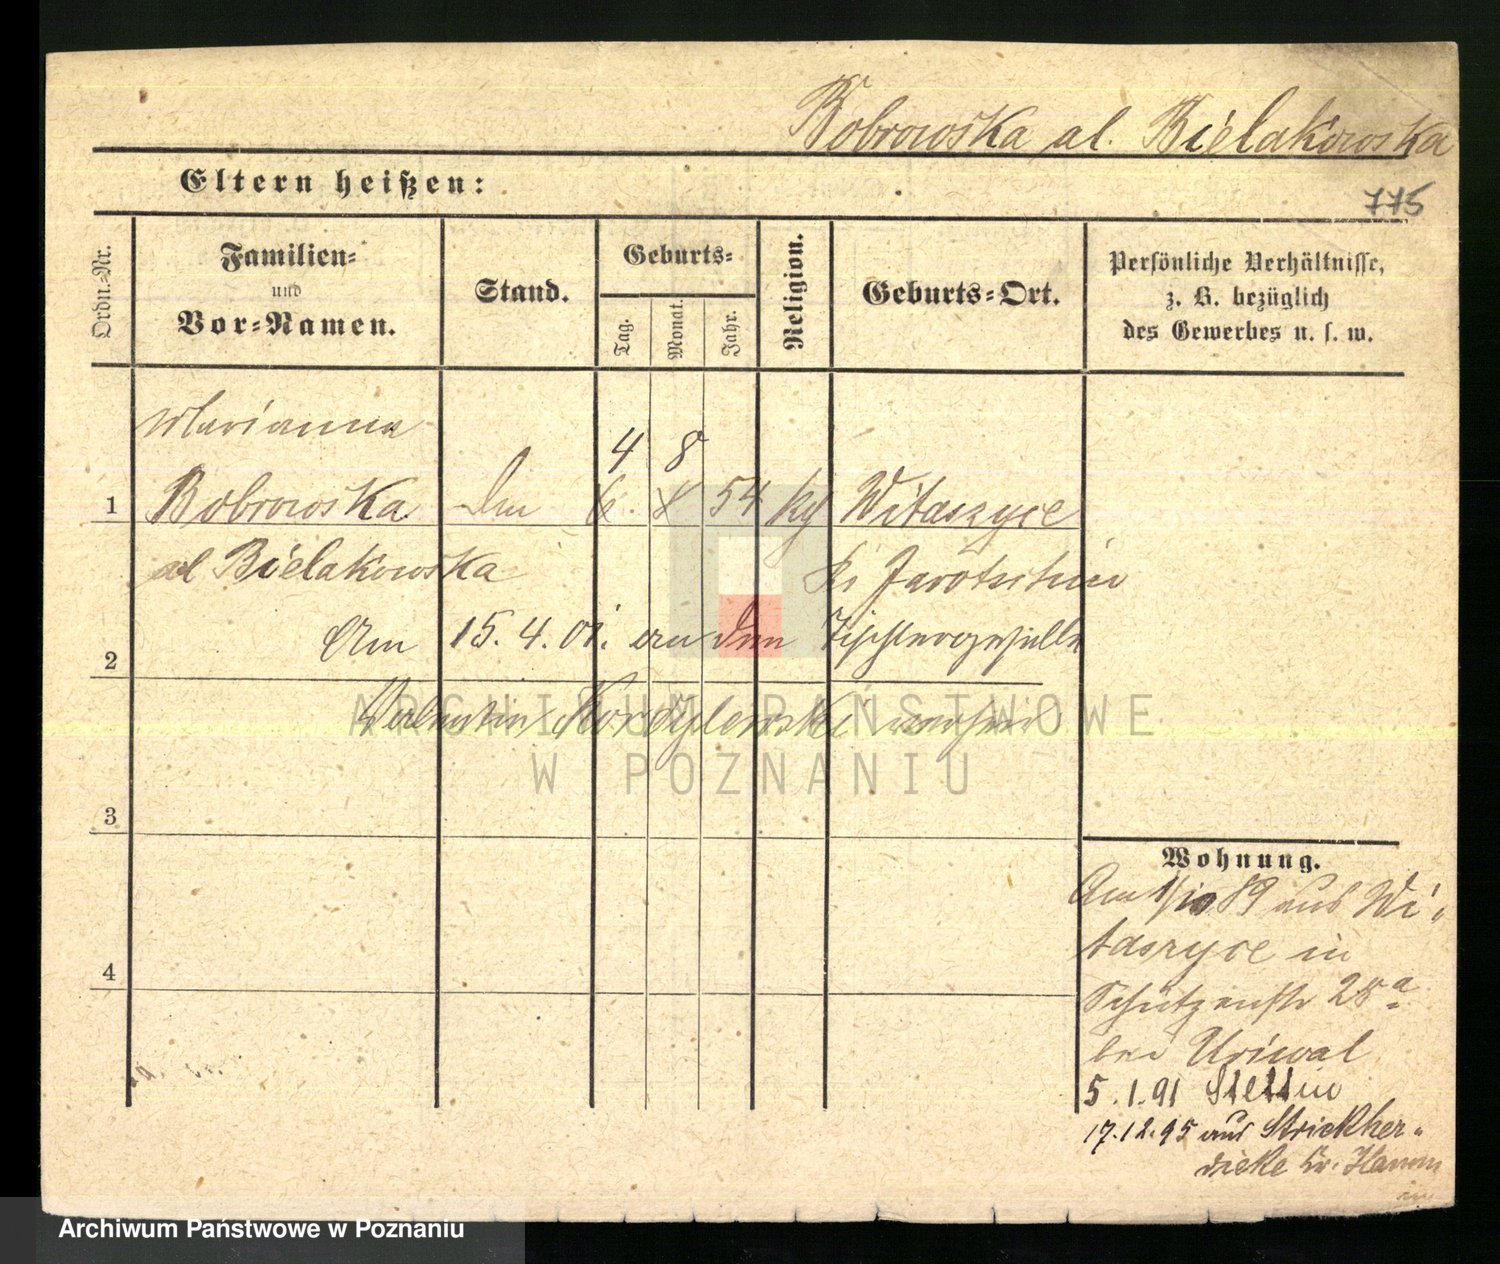 Bobrowska al. Bielakowska
Eltern heißen:
775
Ordn.-Nr.
Familien-
und
Vor-Namen.
Stand.
Geburts-
Tag.
Monat.
Jahr.
Religion.
Geburts-Ort.
Persönliche Verhältnisse,
z. B. bezüglich
des Gewerbes u. s. w.
Marianna
4 8
1 Bobrowska 6. 54 Witaszyce
al Bielakowska Kr Jarotschin
2 Am 15. 4. 01. an den Tischlergesellen
Valentin Kordylewski
ARCHIWUM PAŃSTWOWE
W POZNANIU
3
4
Wohnung.
Am 1/10 89 aus Wi-
taszyce in
Schützenstr 25a
bei Uriwal
5.1.91 Stettin
17.12.95 aus Strickher-
dicke Kr. Hamm
Archiwum Państwowe w Poznaniu